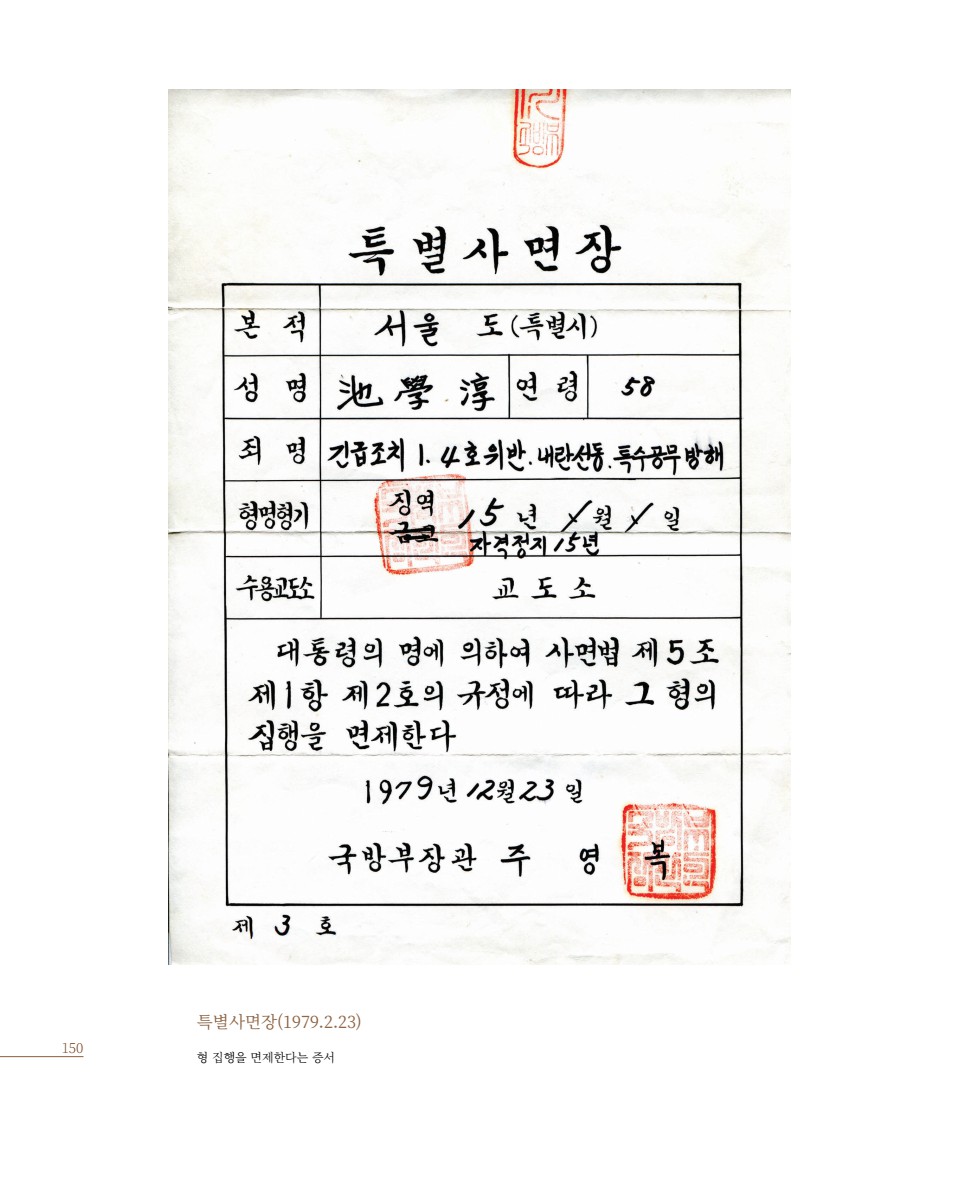 특별사면장
본적 서울 도(특별시)
성명 池學淳 연령 58
죄명 긴급조치 1.4호위반.내란선동.특수공무방해
형명형기 징역 15년 월 일
금고
자격정지 15년
수용교도소 교도소
대통령의 명에 의하여 사면법 제5조
제1항 제2호의 규정에 따라 그 형의
집행을 면제한다
1979년 12월 23일
국방부장관 주영복
제 3 호
특별사면장(1979.2.23)
150
형 집행을 면제한다는 증서